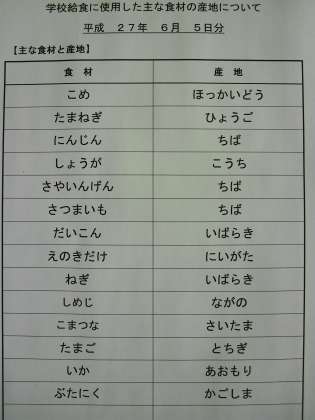 学校給食に使用した主な食材の産地について
平成　２７年　６月　５日分
【主な食材と産地】
食　材　産　地
こめ　ほっかいどう
たまねぎ　ひょうご
にんじん　ちば
しょうが　こうち
さやいんげん　ちば
さつまいも　ちば
だいこん　いばらき
えのきだけ　にいがた
ねぎ　いばらき
しめじ　ながの
こまつな　さいたま
たまご　とちぎ
いか　あおもり
ぶたにく　かごしま